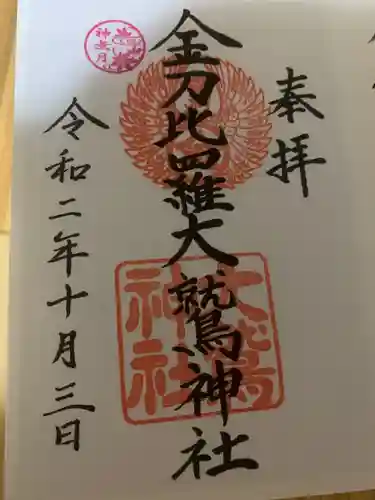 奉拝
金刀比羅大鷲神社
令和二年十月三日
神無月
大鷲
神社